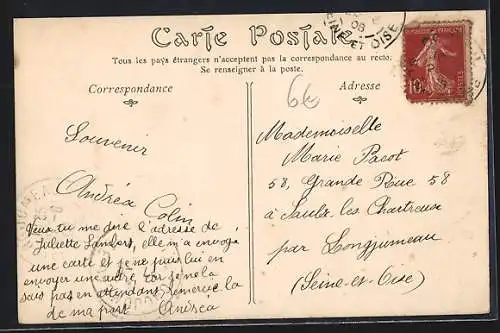 Carte Postale
Tous les pays étrangers n'acceptent pas la correspondance au recto.
Se renseigner à la poste.
Correspondance
Adresse
6€
Souvenir
Andréa Colin
Veux tu me dire l'adresse de
Juliette Lambert, elle m'a envoyé
une carte et je ne puis lui en
envoyer une autre car je ne la
sais pas en attendant, remercie la
de ma part Andréa
Mademoiselle
Marie Pacot
58, Grande Rue 58
à Saulx les Chartreux
par Longjumeau
(Seine-et-Oise)
10
INE-ET-OISE
08